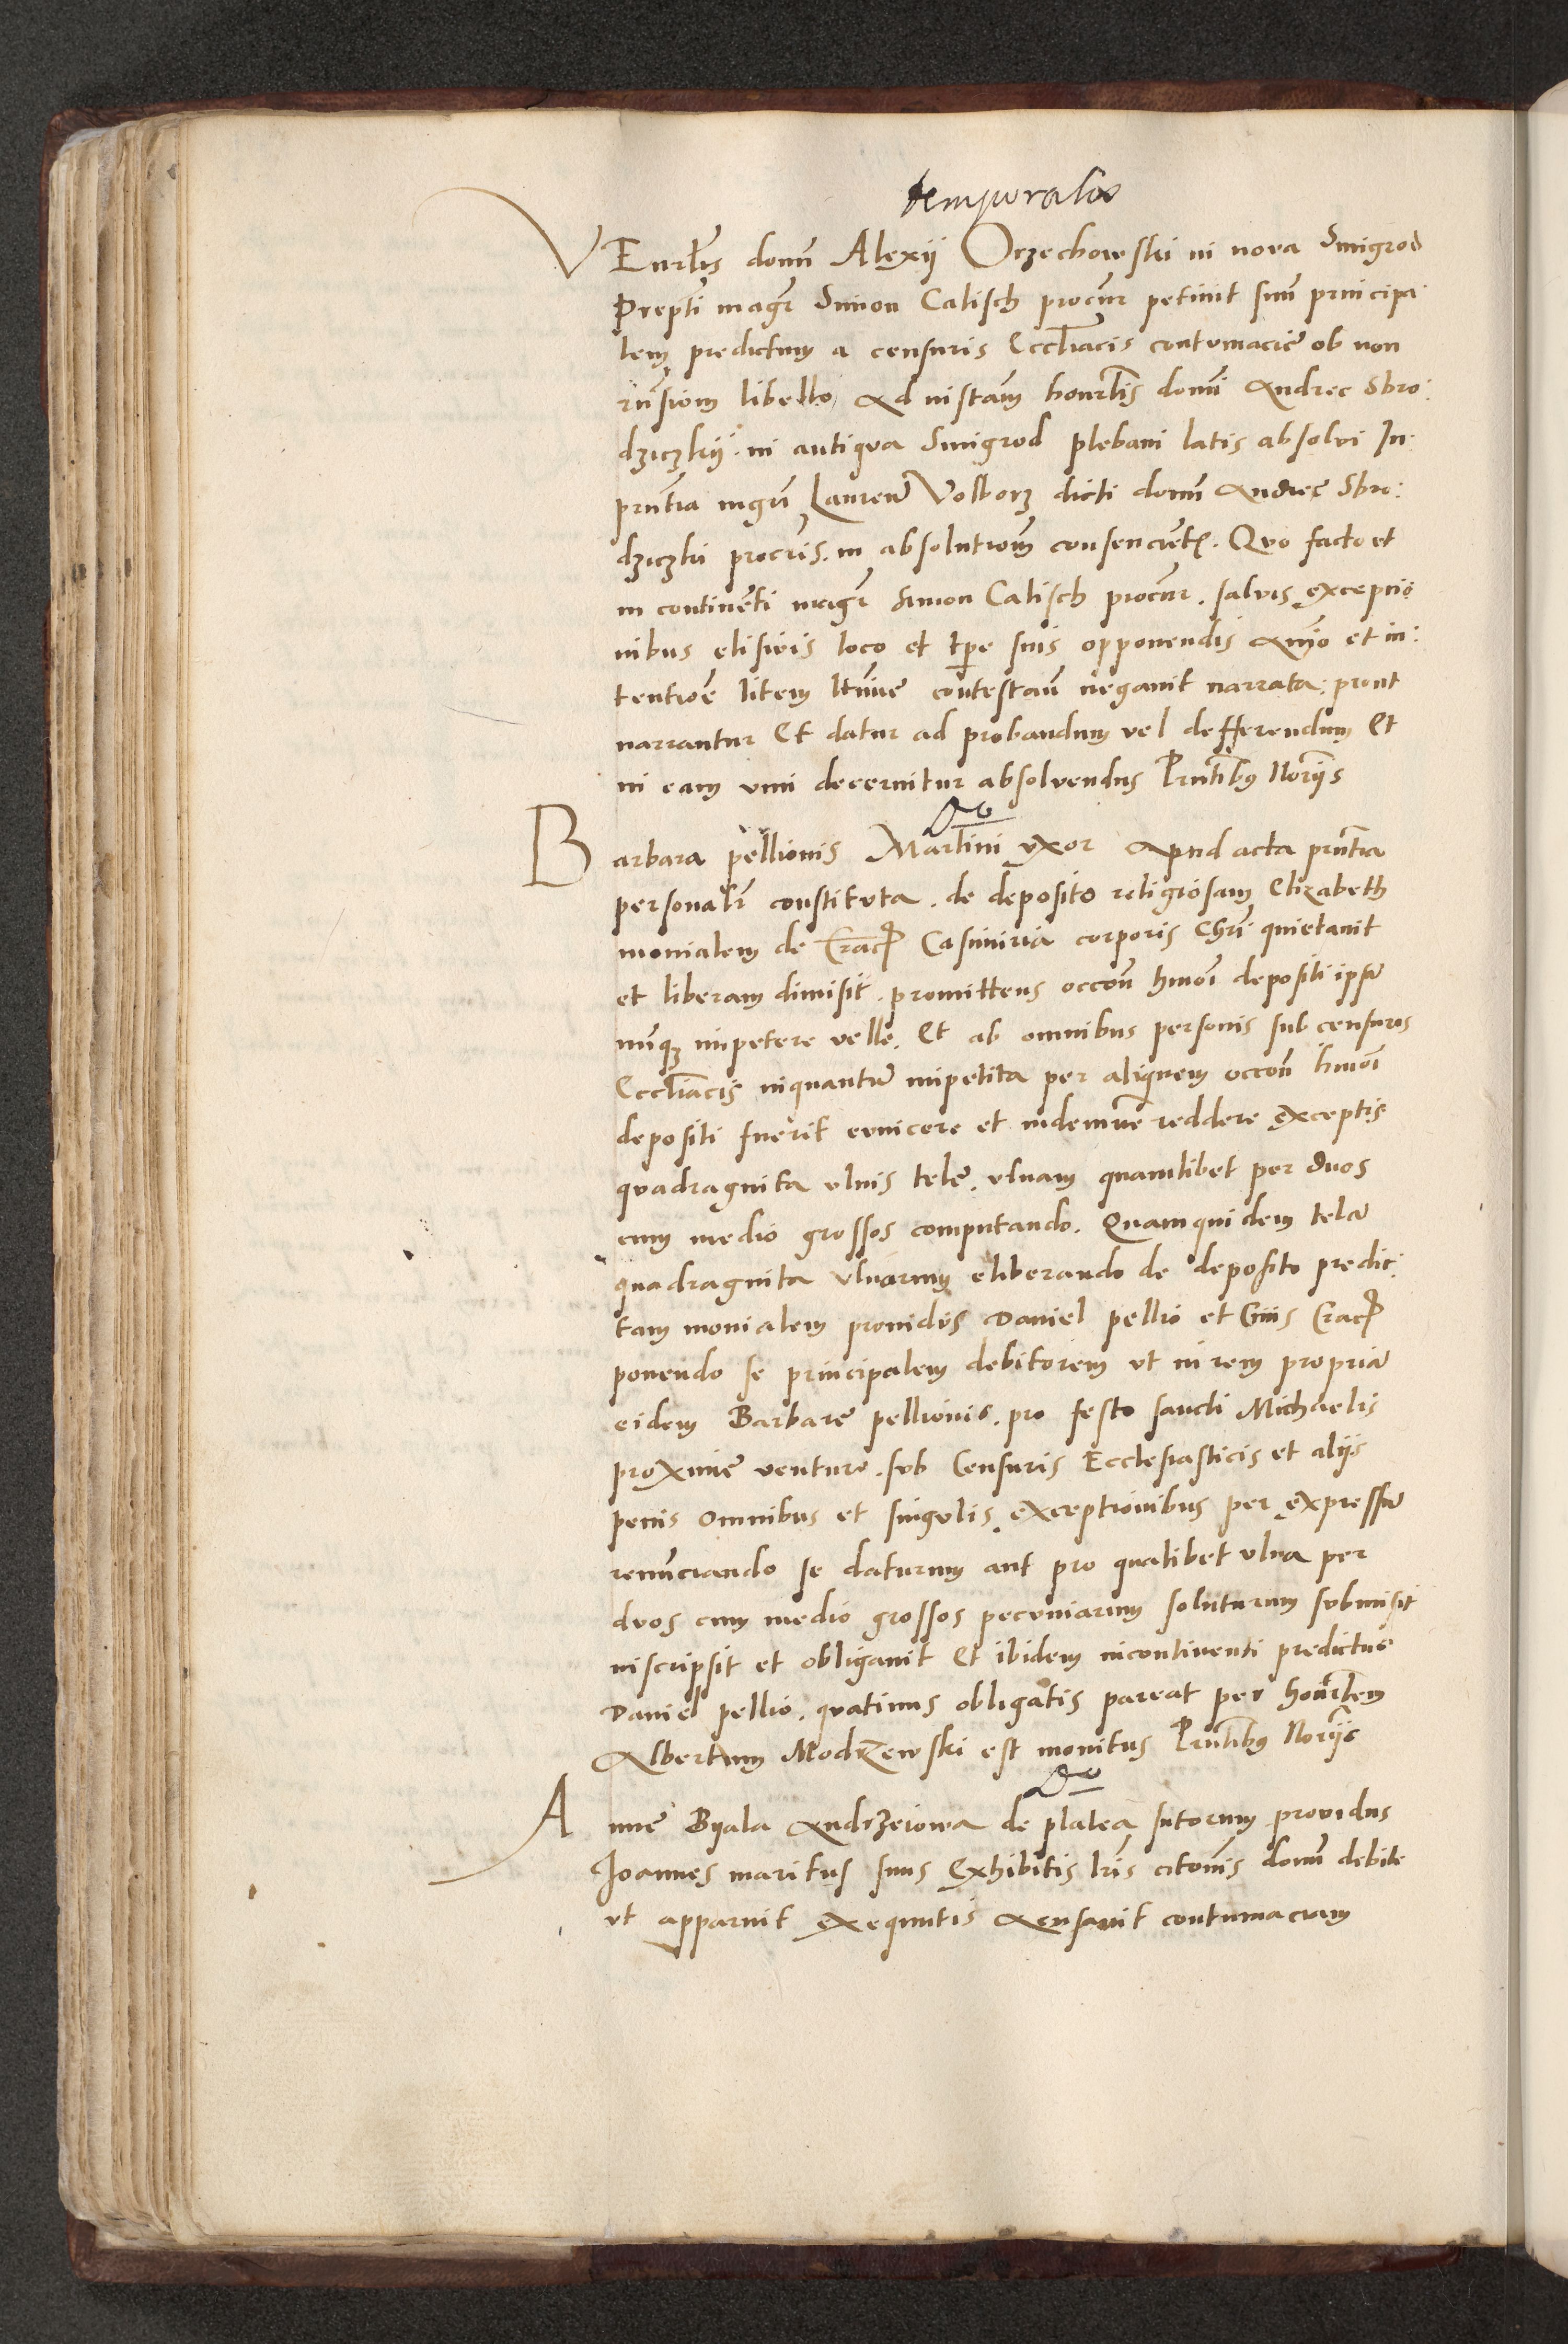 temporalis
VEnerlis domni Alexij Orzechowski in nova Smigrod
Prepti magr Simon Calisch procur petivit suum principa
lem predictum a censuris Eccliacis contumacie ob non
rnsionem libello Ad instam honorlis domni Andree Sbro:
dziczkij in antiqua Smigrod plebani latis absolvi In
prntia mgri Laurentii Volborz dicti domni Andree Sbro:
dziczki procris in absolutionem consencientis. Quo facto et
in continenti magr Simon Calisch procur. salvis exceptio
nibus elisivis loco et tpre suis opponendis Animo et in:
tentione litem ltime contestandi negavit narrata: prout
narrantur Et datur ad probandum vel defferendum Et
in eam vim decernitur absolvendus Prntibus Norijs
Do
Barbara pellionis Martini uxor Apud acta prntia
personalr constituta. de deposito religiosam Elizabeth
monialem de Crac Casimiria corporis Chri quietavit
et liberam dimisit. promittens occone hmoi depositi ipsam
nunquam impetere velle. Et ab omnibus personis sub censuris
Eccliacis inquantum impetita per aliquem occone hmoi
depositi fuerit evincere et indemne reddere exceptis
quadraginta ulnis tele. ulnam quamlibet per duos
cum medio grossos computando. Quamquidem telam
quadraginta ulnarum eliberando de deposito predic:
tam monialem providus Daniel pellio et Civis Crac
ponendo se principalem debitorem ut in rem propriam
eidem Barbare pellionis. pro festo sancti Michaelis
proxime venturo. sub Censuris Ecclesiasticis et alijs
penis omnibus et singulis exceptionibus per expressum
renunciando se daturum aut pro qualibet ulna per
duos cum medio grossos pecuniarum soluturum submisit
inscripsit et obligavit Et ibidem incontinenti predictus
Daniel pellio. quatinus obligatis pareat per honorlem
Albertum Modrzewski est monitus Prntibus Norijs
Do
Anne Byala Andrzeiowa de platea sutorum providus
Joannes maritus suus Exhibitis lris citonis domni debite
ut apparuit exequutis Accusavit contumaciam